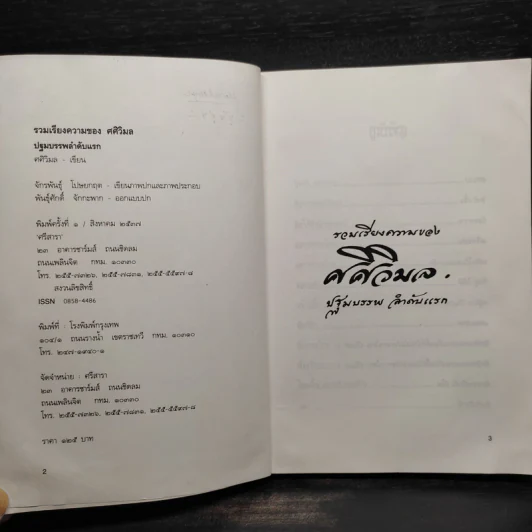 รวมเรียงความของ ศศิวิมล
ปฐมบรรพลำดับแรก
ศศิวิมล - เขียน
จักรพันธุ์ โปษยกฤต - เขียนภาพปกและภาพประกอบ
พันธุ์ศักดิ์ จักกะพาก - ออกแบบปก
พิมพ์ครั้งที่ ๑ / สิงหาคม ๒๕๓๗
ศรีสารา
๒๓ อาคารชาร์มส์ ถนนชิดลม
ถนนเพลินจิต กทม. ๑๐๓๓๐
โทร. ๒๕๕-๗๓๒๖, ๒๕๕-๗๘๓๑, ๒๕๕-๕๕๙๗-๘
สงวนลิขสิทธิ์
ISSN 0858-4486
พิมพ์ที่ : โรงพิมพ์กรุงเทพ
๑๐๙/๑ ถนนรางน้ำ เขตราชเทวี กทม. ๑๐๓๑๐
โทร. ๒๔๗-๑๙๔๐-๑
จัดจำหน่าย : ศรีสารา
๒๓ อาคารชาร์มส์ ถนนชิดลม
ถนนเพลินจิต กทม. ๑๐๓๓๐
โทร. ๒๕๕-๗๓๒๖, ๒๕๕-๗๘๓๑, ๒๕๕-๕๕๙๗-๘
ราคา ๑๒๕ บาท
2
รวมเรียงความของ
ศศิวิมล.
ปฐมบรรพ ลำดับแรก
3